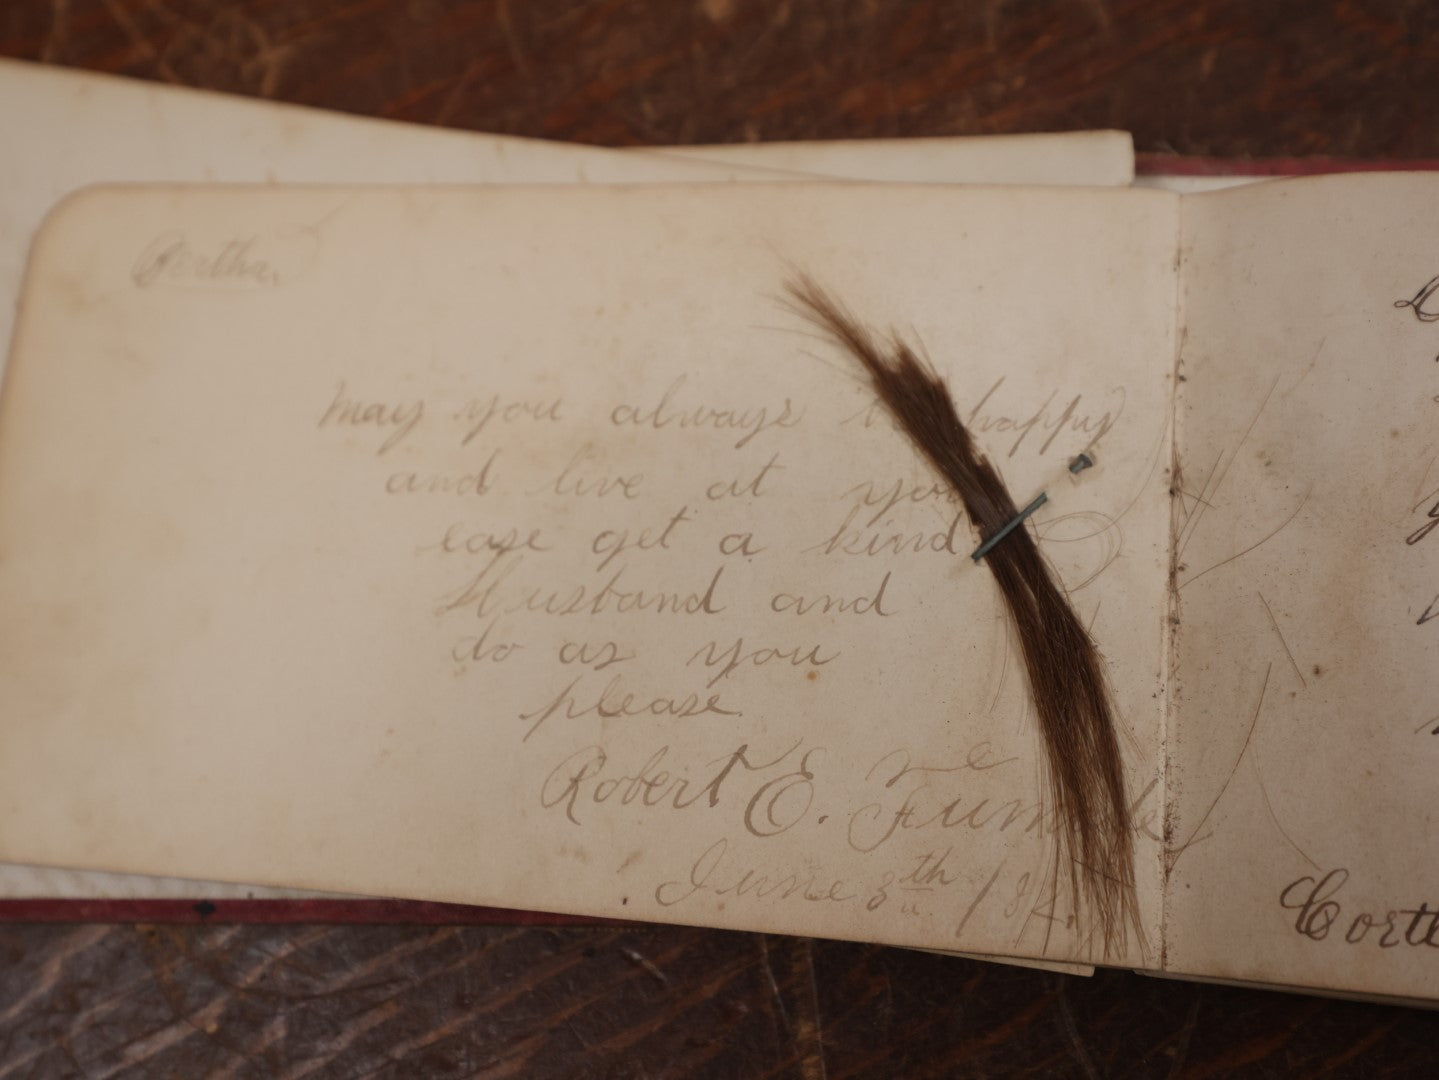 Bertha.
may you always happy
and live at you
ease get a kind
Husband and
do as you
please
Robert E.
June 8th